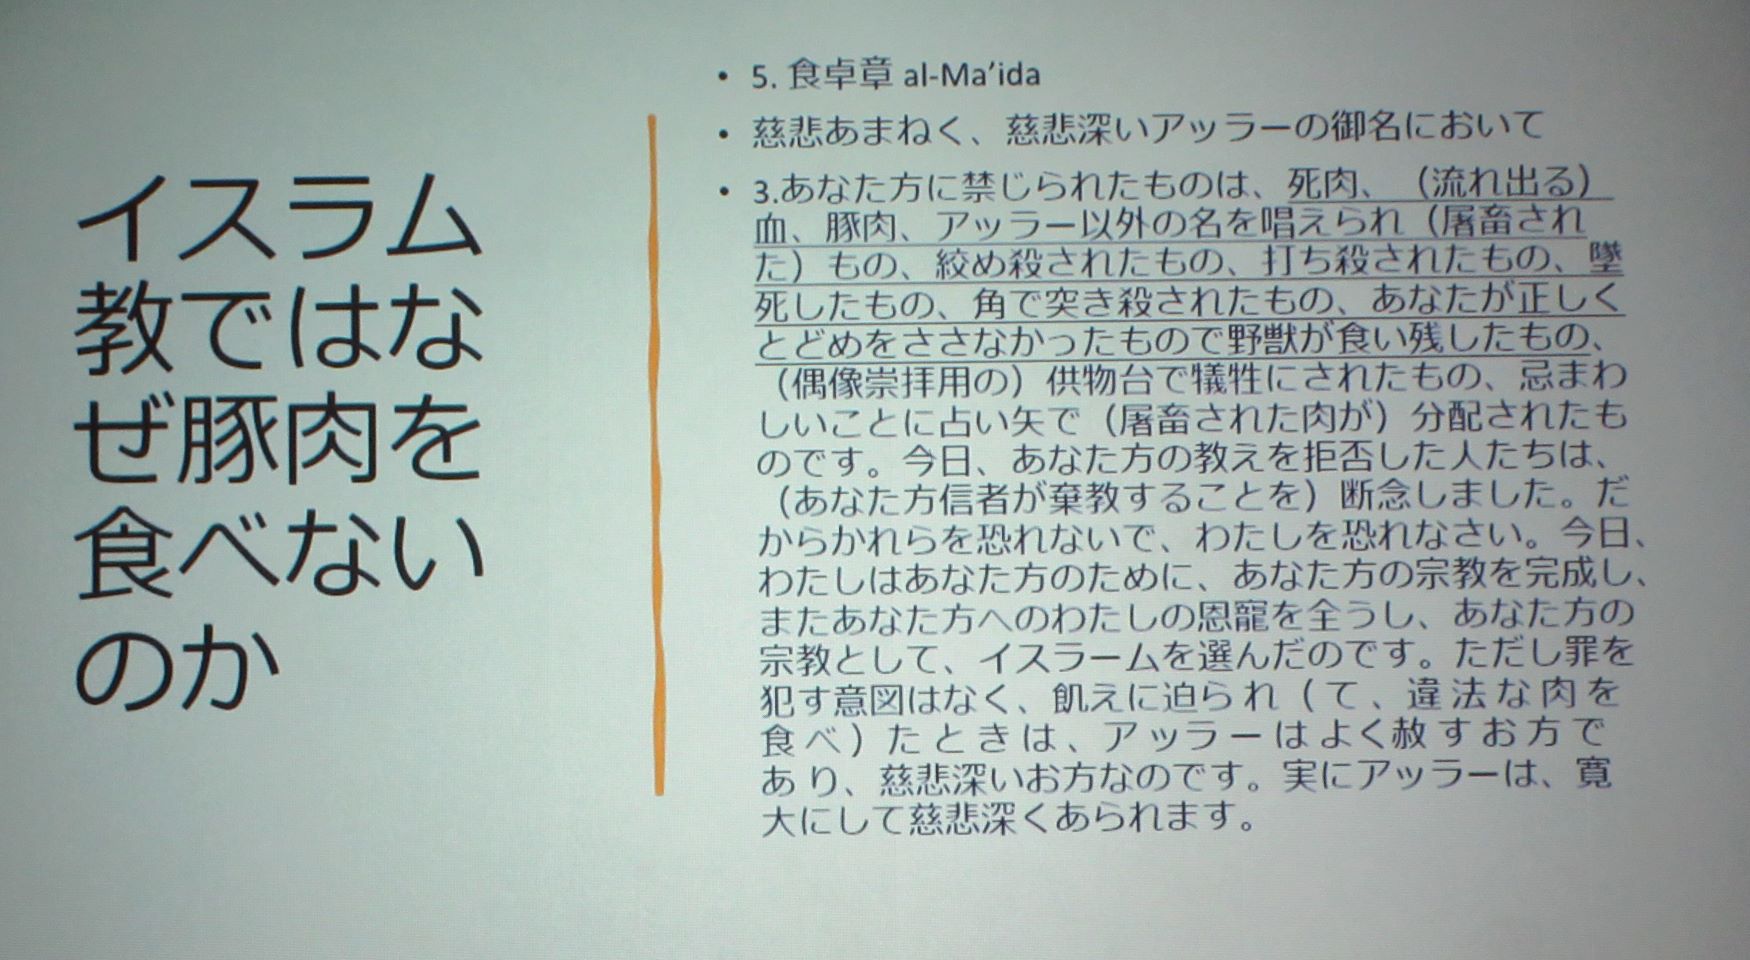 イスラム
教ではな
ぜ豚肉を
食べない
のか
• 5. 食卓章 al-Ma’ida
• 慈悲あまねく、慈悲深いアッラーの御名において
• 3.あなた方に禁じられたものは、死肉、（流れ出る）
血、豚肉、アッラー以外の名を唱えられ（屠畜され
た）もの、絞め殺されたもの、打ち殺されたもの、墜
死したもの、角で突き殺されたもの、あなたが正しく
とどめをささなかったもので野獣が食い残したもの、
（偶像崇拝用の）供物台で犠牲にされたもの、忌まわ
しいことに占い矢で（屠畜された肉が）分配されたも
のです。今日、あなた方の教えを拒否した人たちは、
（あなた方信者が棄教することを）断念しました。だ
からかれらを恐れないで、わたしを恐れなさい。今日、
わたしはあなた方のために、あなた方の宗教を完成し、
またあなた方へのわたしの恩寵を全うし、あなた方の
宗教として、イスラームを選んだのです。ただし罪を
犯す意図はなく、飢えに迫られ（て、違法な肉を
食べ）たときは、アッラーはよく赦すお方で
あり、慈悲深いお方なのです。実にアッラーは、寛
大にして慈悲深くあられます。